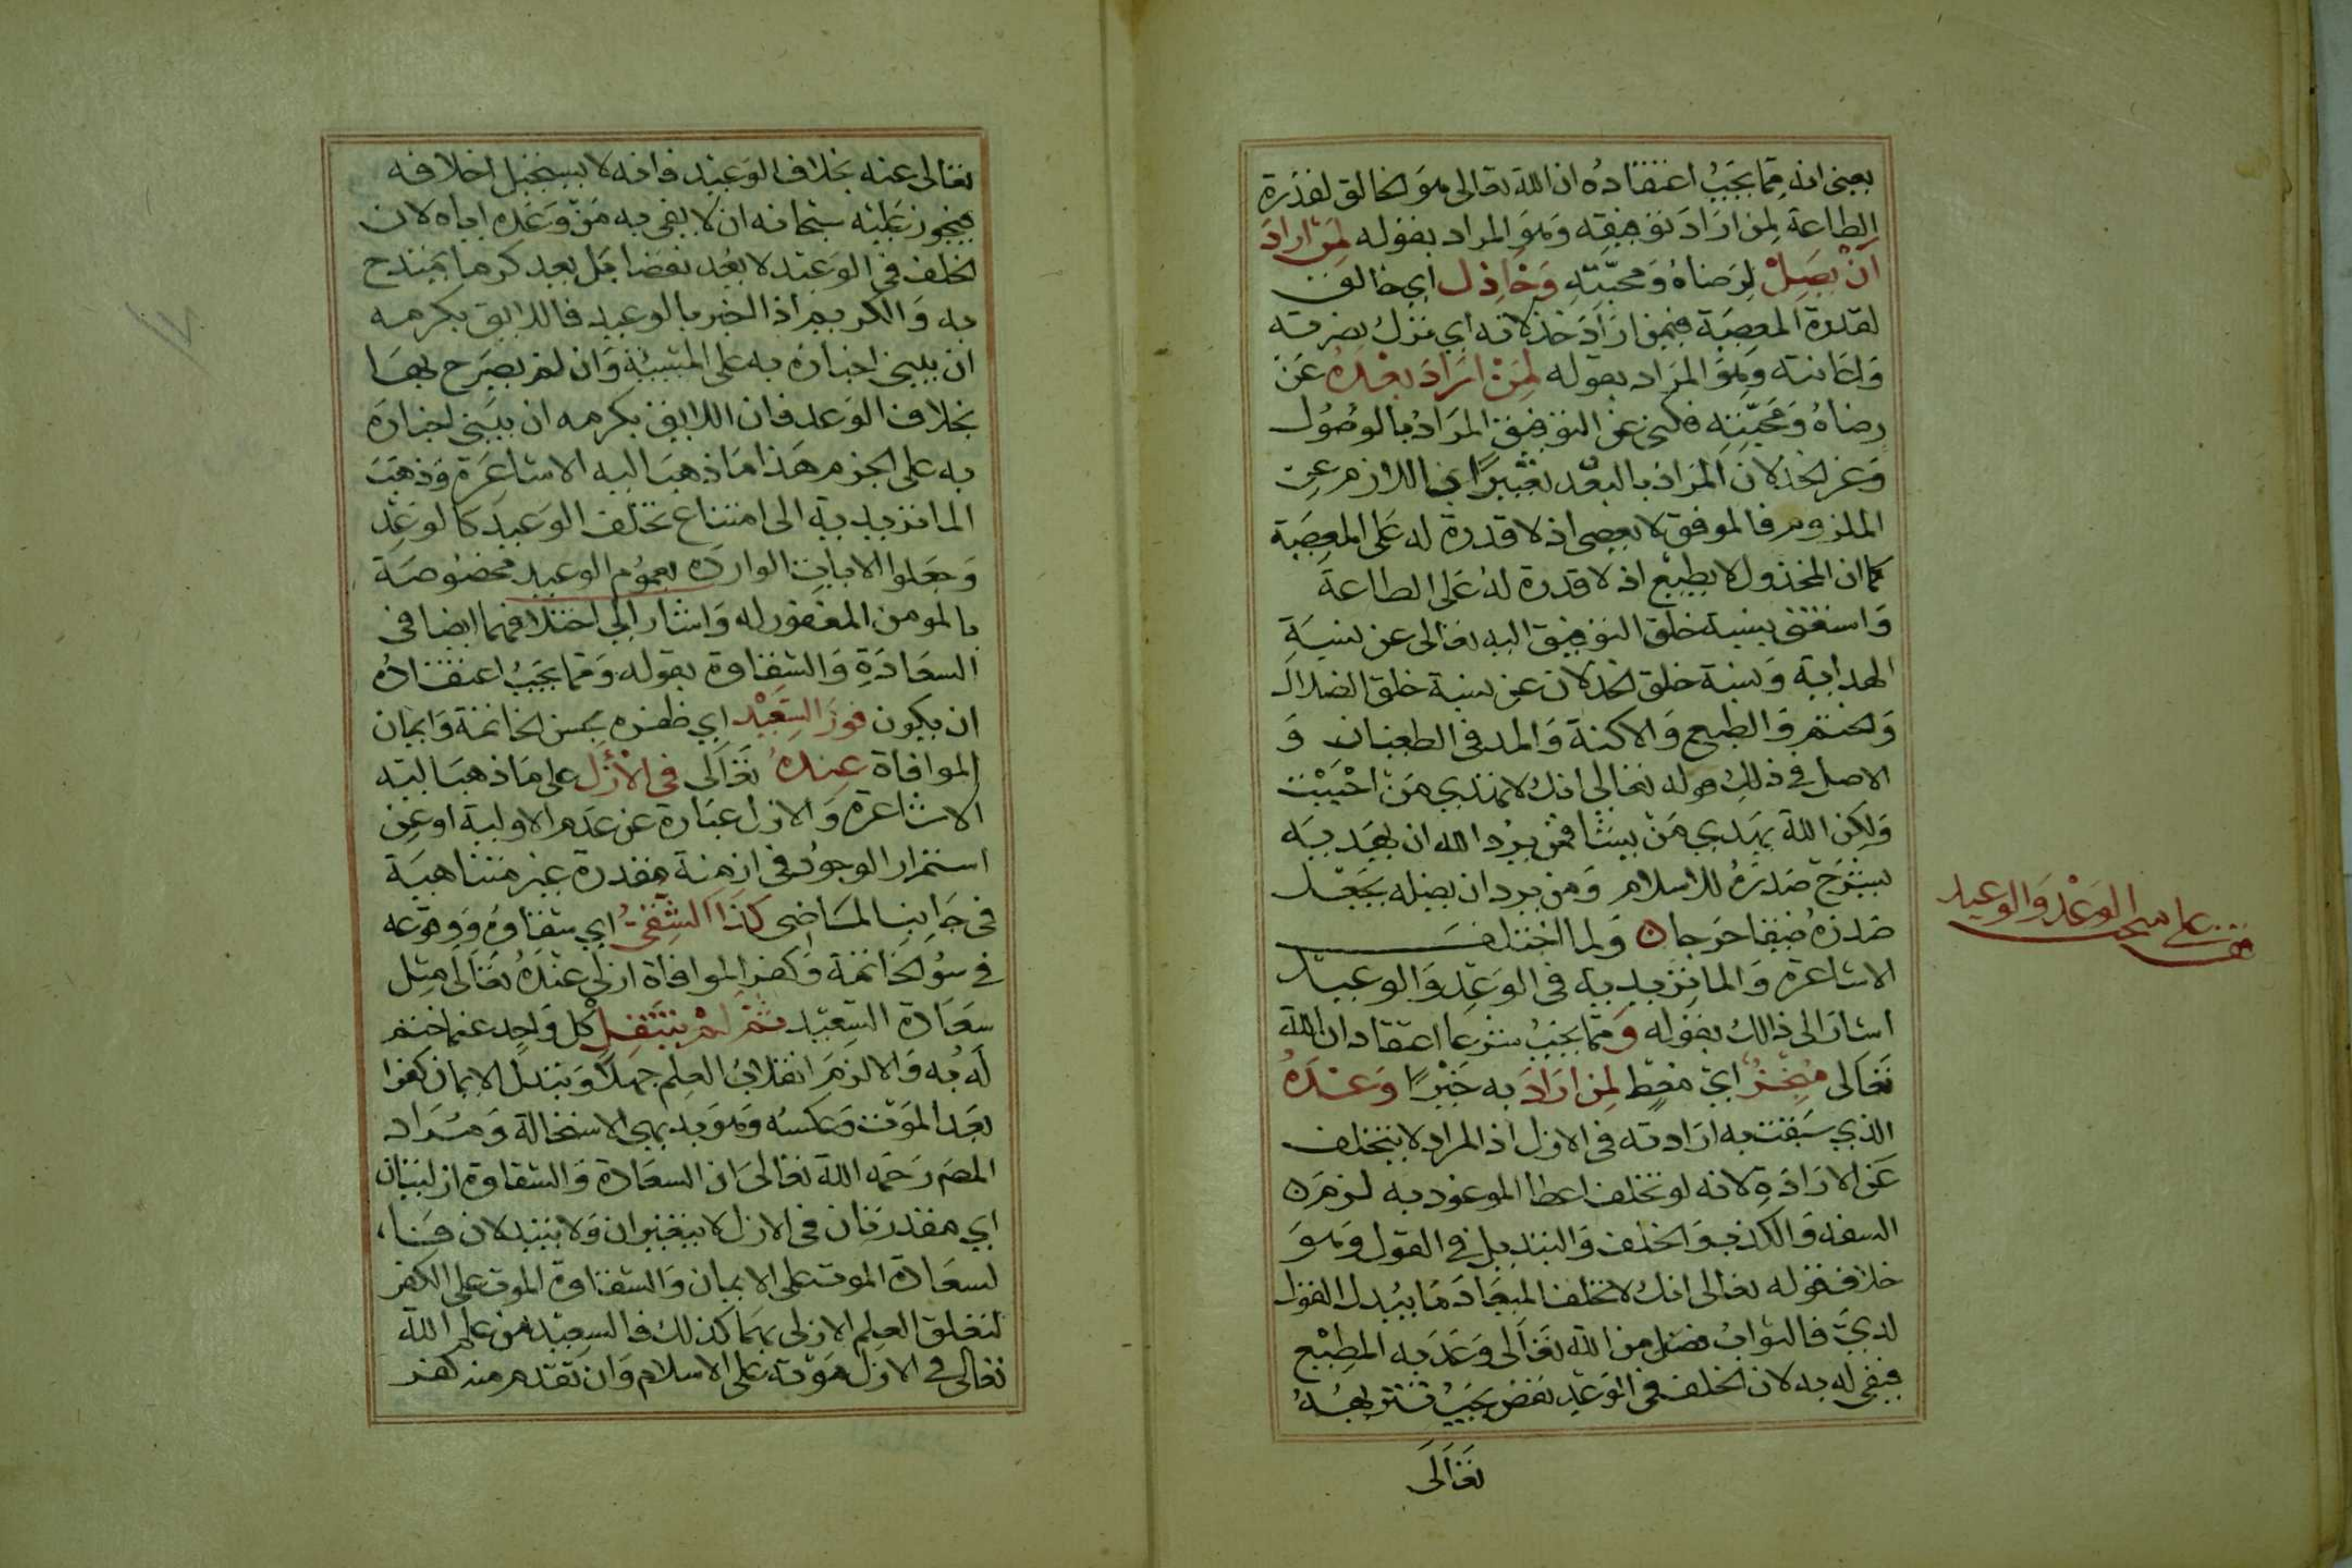 يعني انه مما يجب اعتقاده ان الله تعالى هو الخالق لقدرة
الطاعة لمن اراد توفيقه وهو المراد بقوله لمن اراد
ان يصل لرضاه ومحبته وخاذل اي خالق
لقدرة المعصية فيمن اراد خذلانه اي ترك نصرته
واعانته وهو المراد بقوله لمن اراد بعده عن
رضاه ومحبته فكنى عن التوفيق المراد بالوصول
وعن الخذلان المراد بالبعد تعبيرا باللازم عن
الملزوم فالموفق لا يعصى اذ لا قدرة له على المعصية
كما ان المخذول لا يطيع اذ لا قدرة له على الطاعة
واستغنى بنسبة خلق التوفيق اليه تعالى عن نسبة
الهداية ونسبة خلق الخذلان عن نسبة خلق الضلال
والختم والطبع والاكنة والمد في الطغيان و
الاصل في ذلك قوله تعالى انك لا تهتدي من احببت
ولكن الله يهدي من يشا فمن يرد الله ان يهديه
يشرح صدره للاسلام ومن يرد ان يضله يجعل
صدره ضيقا حرجا ولما اختلف
الاشاعرة والماتريدية في الوعد والوعيد
اشار الى ذالك بقوله ومما يجب شرعا اعتقاد ان الله
تعالى منجز اي معط لمن اراد به خيرا وعده
الذي سبقت به ارادته في الازل اذ المراد لا يتخلف
عن الارادة لانه لو تخلف اعطا الموعود به لزم
السفه والكذب والخلف والتبديل في القول وهو
خلاف قوله تعالى انك لا تخلف الميعاد ما يبدل القول
لدي فالثواب فضل من الله تعالى وعد به المطيع
فيفي له به لان الخلف في الوعد نقص يجب تنزيهه
تعالى
قف على مبحث الوعد والوعيد
تعالى عنه بخلاف الوعيد فانه لا يستحيل اخلافه
فيجوز عليه سبحانه ان لا يفي به من وعده اياه لان
الخلف في الوعيد لا يعد نقصا بل يعد كرما يمتدح
به والكريم اذا اخبر بالوعيد فاللايق بكرمه
ان يبني اخباره به على المشيئة وان لم يصرح بها
بخلاف الوعد فان اللايق بكرمه ان يبني اخباره
به على الجزم هذا ما ذهب اليه الاشاعرة وذهبت
الماتريدية الى امتناع تخلف الوعيد كالوعد
وجعلوا الايات الواردة بعموم الوعيد مخصوصة
بالمومن المغفور له واشار الى اختلافهما ايضا في
السعادة والشقاوة بقوله ومما يجب اعتقاده
ان يكون فوز السعيد اي ظفره بحسن الخاتمة وايمان
الموافاة عنده تعالى في الازل على ما ذهب اليه
الاشاعرة والازل عبارة عن عدم الاولية او عن
استمرار الوجود في ازمنة مقدرة غير متناهية
في جانب الماضي كذا الشقي اي شقاوة ووقوعه
في سو الخاتمة وكفر الموافاة ازلي عنده تعالى مثل
سعادة السعيد ثم لم ينتقل كل واحد عما ختم
له به والا لزم انقلاب العلم جهلا وتبدل الايمان كفرا
بعد الموت وعكسه وهو بديهي الاستحالة ومراد
المصم رحمه الله تعالى ان السعادة والشقاوة ازليتان
اي مقدرتان في الازل لا يتغيران ولا يتبدلان
لسعادة الموت على الايمان والشقاوة الموت على الكفر
لتعلق العلم الازلي بهما كذلك فالسعيد من علم الله
تعالى في الازل موته على الاسلام وان تقدم منه كفر